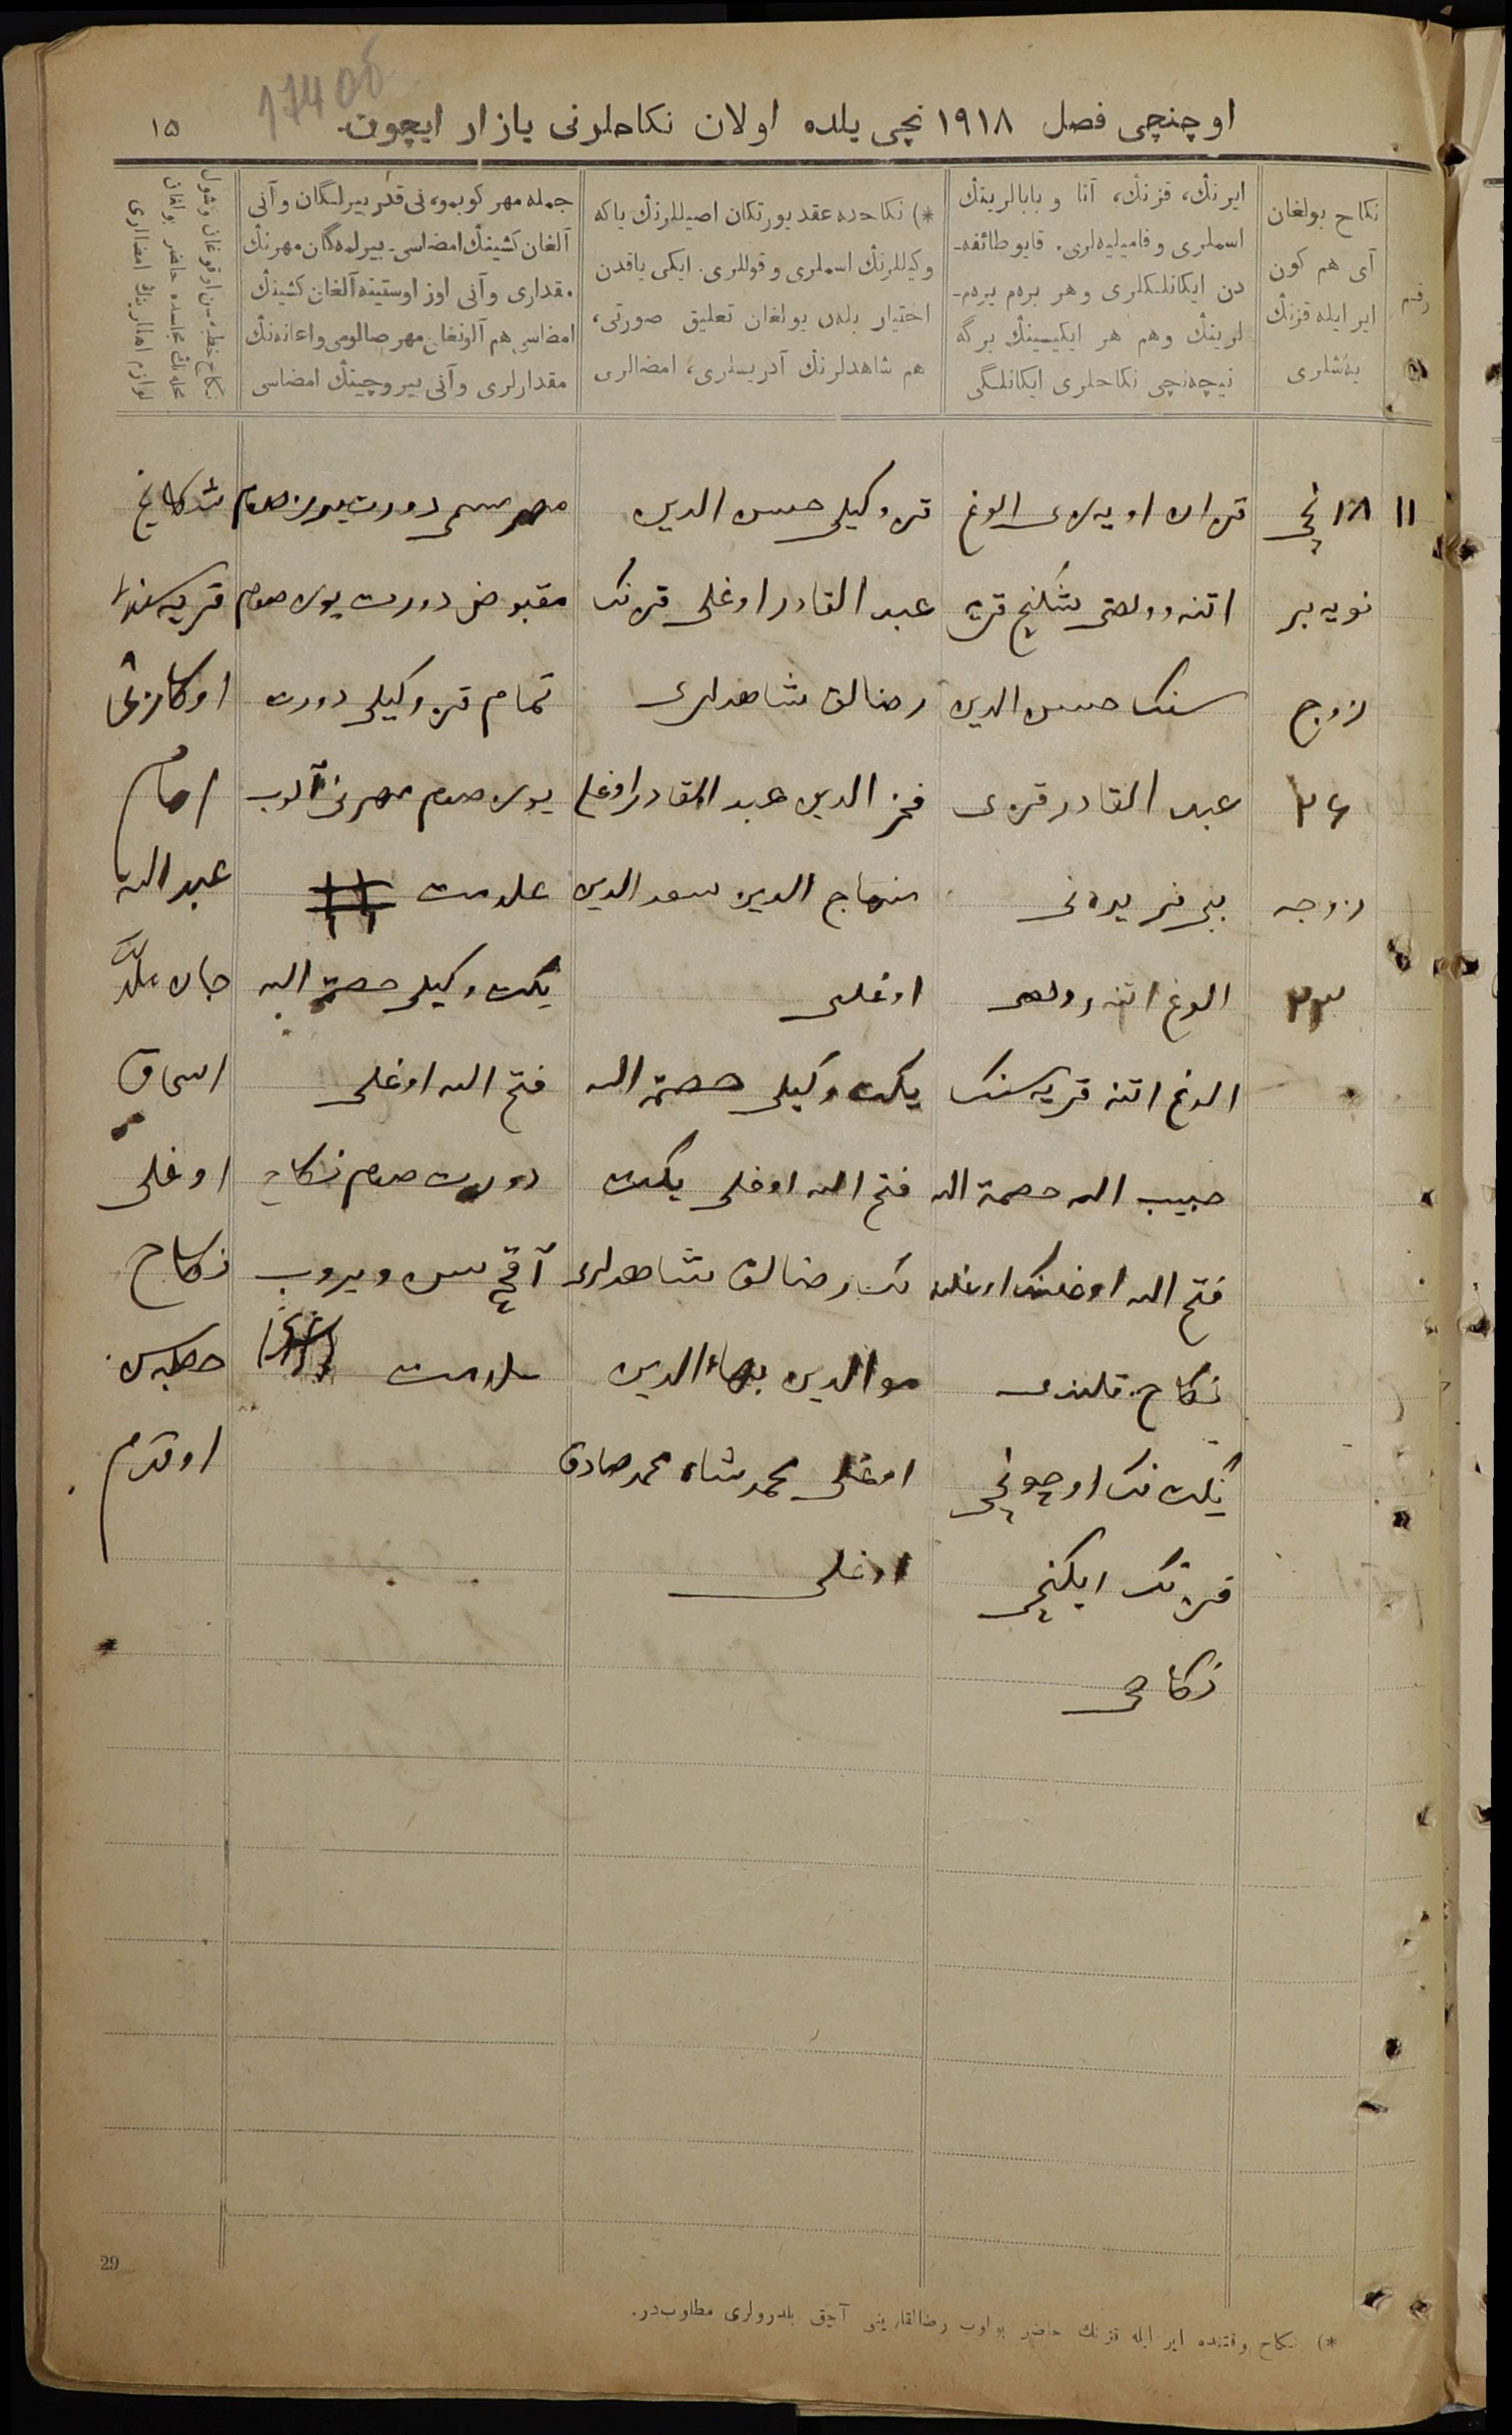 174 об
اوچنچی فصل ۱۹۱۸ نچی یلده اولان نکاحلرنی یازار ایچون
۱۵
رقم
نکاح بولغان
آی هم کون
ایر ایله قزنڭ
یەشلری
ایرنڭ، قزنڭ، آنا و بابالرینڭ
اسملری و فامیلیەلری. قایو طائفه-
دن ایکانلکلری و هر برم برم-
لرینڭ وهم هر ایکیسینڭ برگه
نیچەنچی نکاحلری ایکانلگی
*) نکاحده عقد یورتکان اصیللرنڭ یا که
وکیللرنڭ اسملری و قوللری. ایکی یاقدن
اختیار بلەن بولغان تعلیق صورتی،
هم شاهدلرنڭ آدریسلری، امضالری
جمله مهر کوبمو، نی قدر بیرلگان و آنی
آلغان کشینڭ امضاسی. بیرلمەگان مهرنڭ
مقداری و آنی اوز اوستینه آلغان کشینڭ
امضاسی هم آلونغان مهر صالومی و اعانەنڭ
مقدارلری و آنی بیروچینڭ امضاسی
نکاح خطبەسن اوقوغان وشول
۱۱
۱۸ نچی
نویەبر
زوج
۲۶
زوجه
۲۳
قزان اویەزی الوغ
اتنه وولصی قریه
سنک حسن الدین
عبد القادر قزی
الوغ اتنه وولصی
الوغ اتنه قریەسنک
حبیب الله عصمة الله
فتح الله اوغلنک اوغلنه
نکاح قلندی
یکت نک اوچونچی
قزنک ایکنچی
نکاحی
قز وکیلی حسن الدین
عبد القادر اوغلی قزنک
رضالق شاهدلری
فخر الدین عبد القادر اوغلی
منهاج الدین سعد الدین
اوغلی
یکت وکیلی عصمة الله
فتح الله اوغلی یکت
نک رضالق شاهدلری
بهاء الدین
اوغلی محمد شاه محمد صادق
اوغلی
مهر مسمی دورت یوز صوم
مقبوض دورت یوز صوم
تمام قز وکیلی دورت
یوز صوم مهرنی آلوب
علامت
یکت وکیلی عصمة الله
فتح الله اوغلی
دورت صوم نکاح
آقچەسن ویروب
علامت
قریەسنده
امام
عبد الله
جان
اسحاق
اوغلی
نکاح
خطبەسن
اوقدم
29
*) نکاح وقتنده ایر ایله قزنڭ حاضر بولوب رضالقلارینی آچق بلدرولری مطلوبدر.